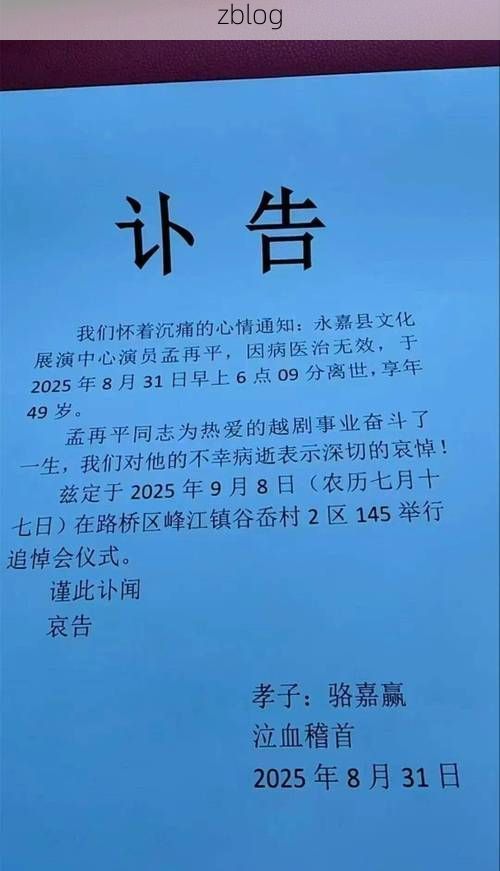 zblog
讣 告
我们怀着沉痛的心情通知：永嘉县文化
展演中心演员孟再平，因病医治无效，于
2025 年 8 月 31 日早上 6 点 09 分离世，享年
49 岁。
孟再平同志为热爱的越剧事业奋斗了
一生，我们对他的不幸病逝表示深切的哀悼！
兹定于 2025 年 9 月 8 日（农历七月十
七日）在路桥区峰江镇谷岙村 2 区 145 举行
追悼会仪式。
谨此讣闻
哀告
孝子：骆嘉赢
泣血稽首
2025 年 8 月 31 日